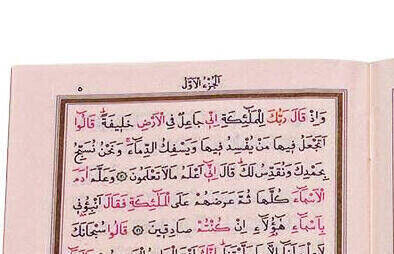 ٥
الجزء الاول
وَاِذْ قَالَ رَبُّكَ لِلْمَلٰٓئِكَةِ اِنّ۪ي جَاعِلٌ فِي الْاَرْضِ خَل۪يفَةًۜ قَالُٓوا
اَتَجْعَلُ ف۪يهَا مَنْ يُفْسِدُ ف۪يهَا وَيَسْفِكُ الدِّمَٓاءَۚ وَنَحْنُ نُسَبِّحُ
بِحَمْدِكَ وَنُقَدِّسُ لَكَۜ قَالَ اِنّ۪ٓي اَعْلَمُ مَا لَا تَعْلَمُونَ وَعَلَّمَ اٰدَمَ
الْاَسْمَٓاءَ كُلَّهَا ثُمَّ عَرَضَهُمْ عَلَى الْمَلٰٓئِكَةِ فَقَالَ اَنْبِؤُ۫ن۪ي
بِاَسْمَٓاءِ هٰٓؤُ۬لَٓاءِ اِنْ كُنْتُمْ صَادِق۪ينَ قَالُوا سُبْحَانَكَ